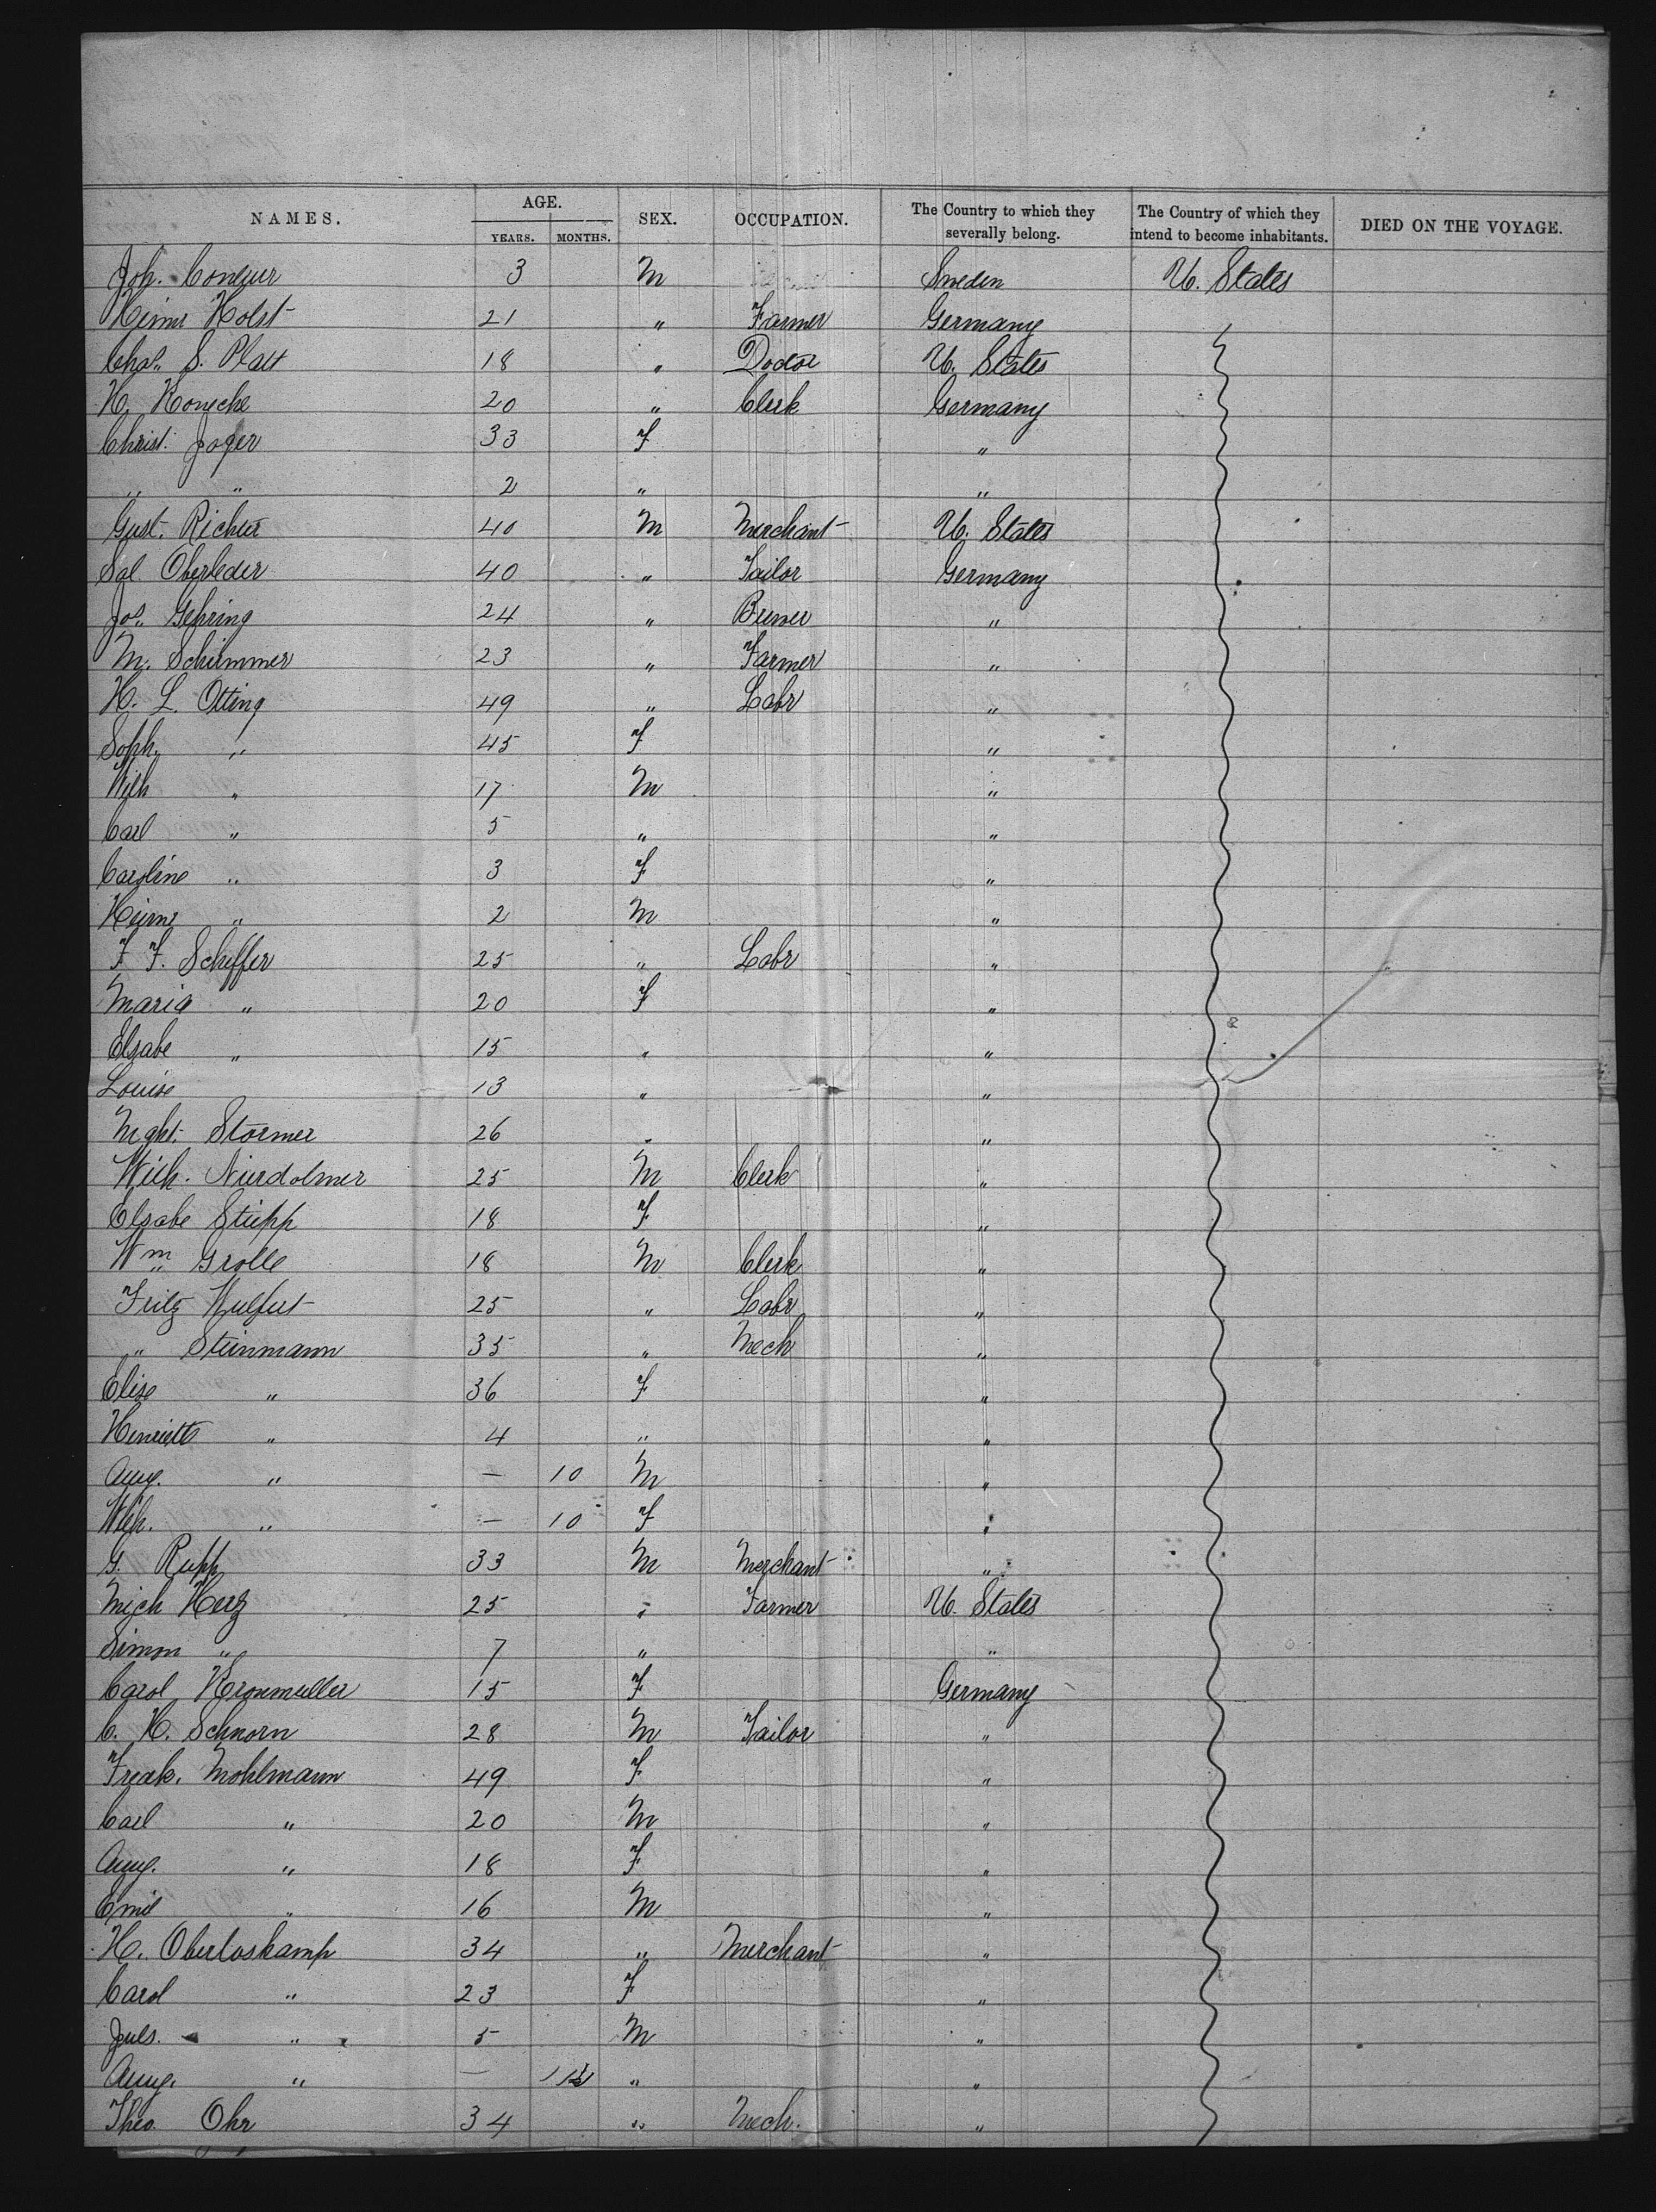 NAMES. AGE. SEX. OCCUPATION. The Country to which they severally belong. The Country of which they intend to become inhabitants. DIED ON THE VOYAGE.
YEARS. MONTHS.
Joh. 3 M Sweden U. States
Heinr Holst 21 " Farmer Germany
Chas. S. Platt 18 " Doctor U. States
H. 20 " Clerk Germany
Christ. Jager 33 F "
" " 2 " "
Gust. Richter 40 M Merchant U. States
Sal. Oberleder 40 " Tailor Germany
Jos. Gehring 24 " Brewer "
M. Schimmer 23 " Farmer "
H. L. Otting 49 " Labr "
Soph. " 45 F "
Wilh " 17 M "
Carl " 5 " "
Caroline " 3 F "
Heinr " 2 M "
F. F. Scheffer 25 " Labr "
Maria " 20 F "
Elsabe " 15 " "
Louise 13 " "
Mght. Stormer 26 " "
Wilh. Nierdolmer 25 M Clerk "
Elsabe Stupp 18 F "
Wm Grolle 18 M Clerk "
Fritz Wulfert 25 " Labr "
" Steinmann 35 " Mech "
Elise " 36 F "
Henriette " 4 " "
Aug. " — 10 M "
Wilh. " — 10 F "
G. Rupp 33 M Merchant "
Mich Herz 25 " Farmer U. States
Simon " 7 " "
Carol Kronmuller 15 F Germany
C. H. Schnorn 28 M Tailor "
Fredk. Mohlmann 49 F "
Carl " 20 M "
Aug. " 18 F "
Emil " 16 M "
H. Oberloskamp 34 " Merchant "
Carol " 23 F "
Juls. " 5 M "
Aug. " — " "
Theo. Ohr 34 " Mech. "